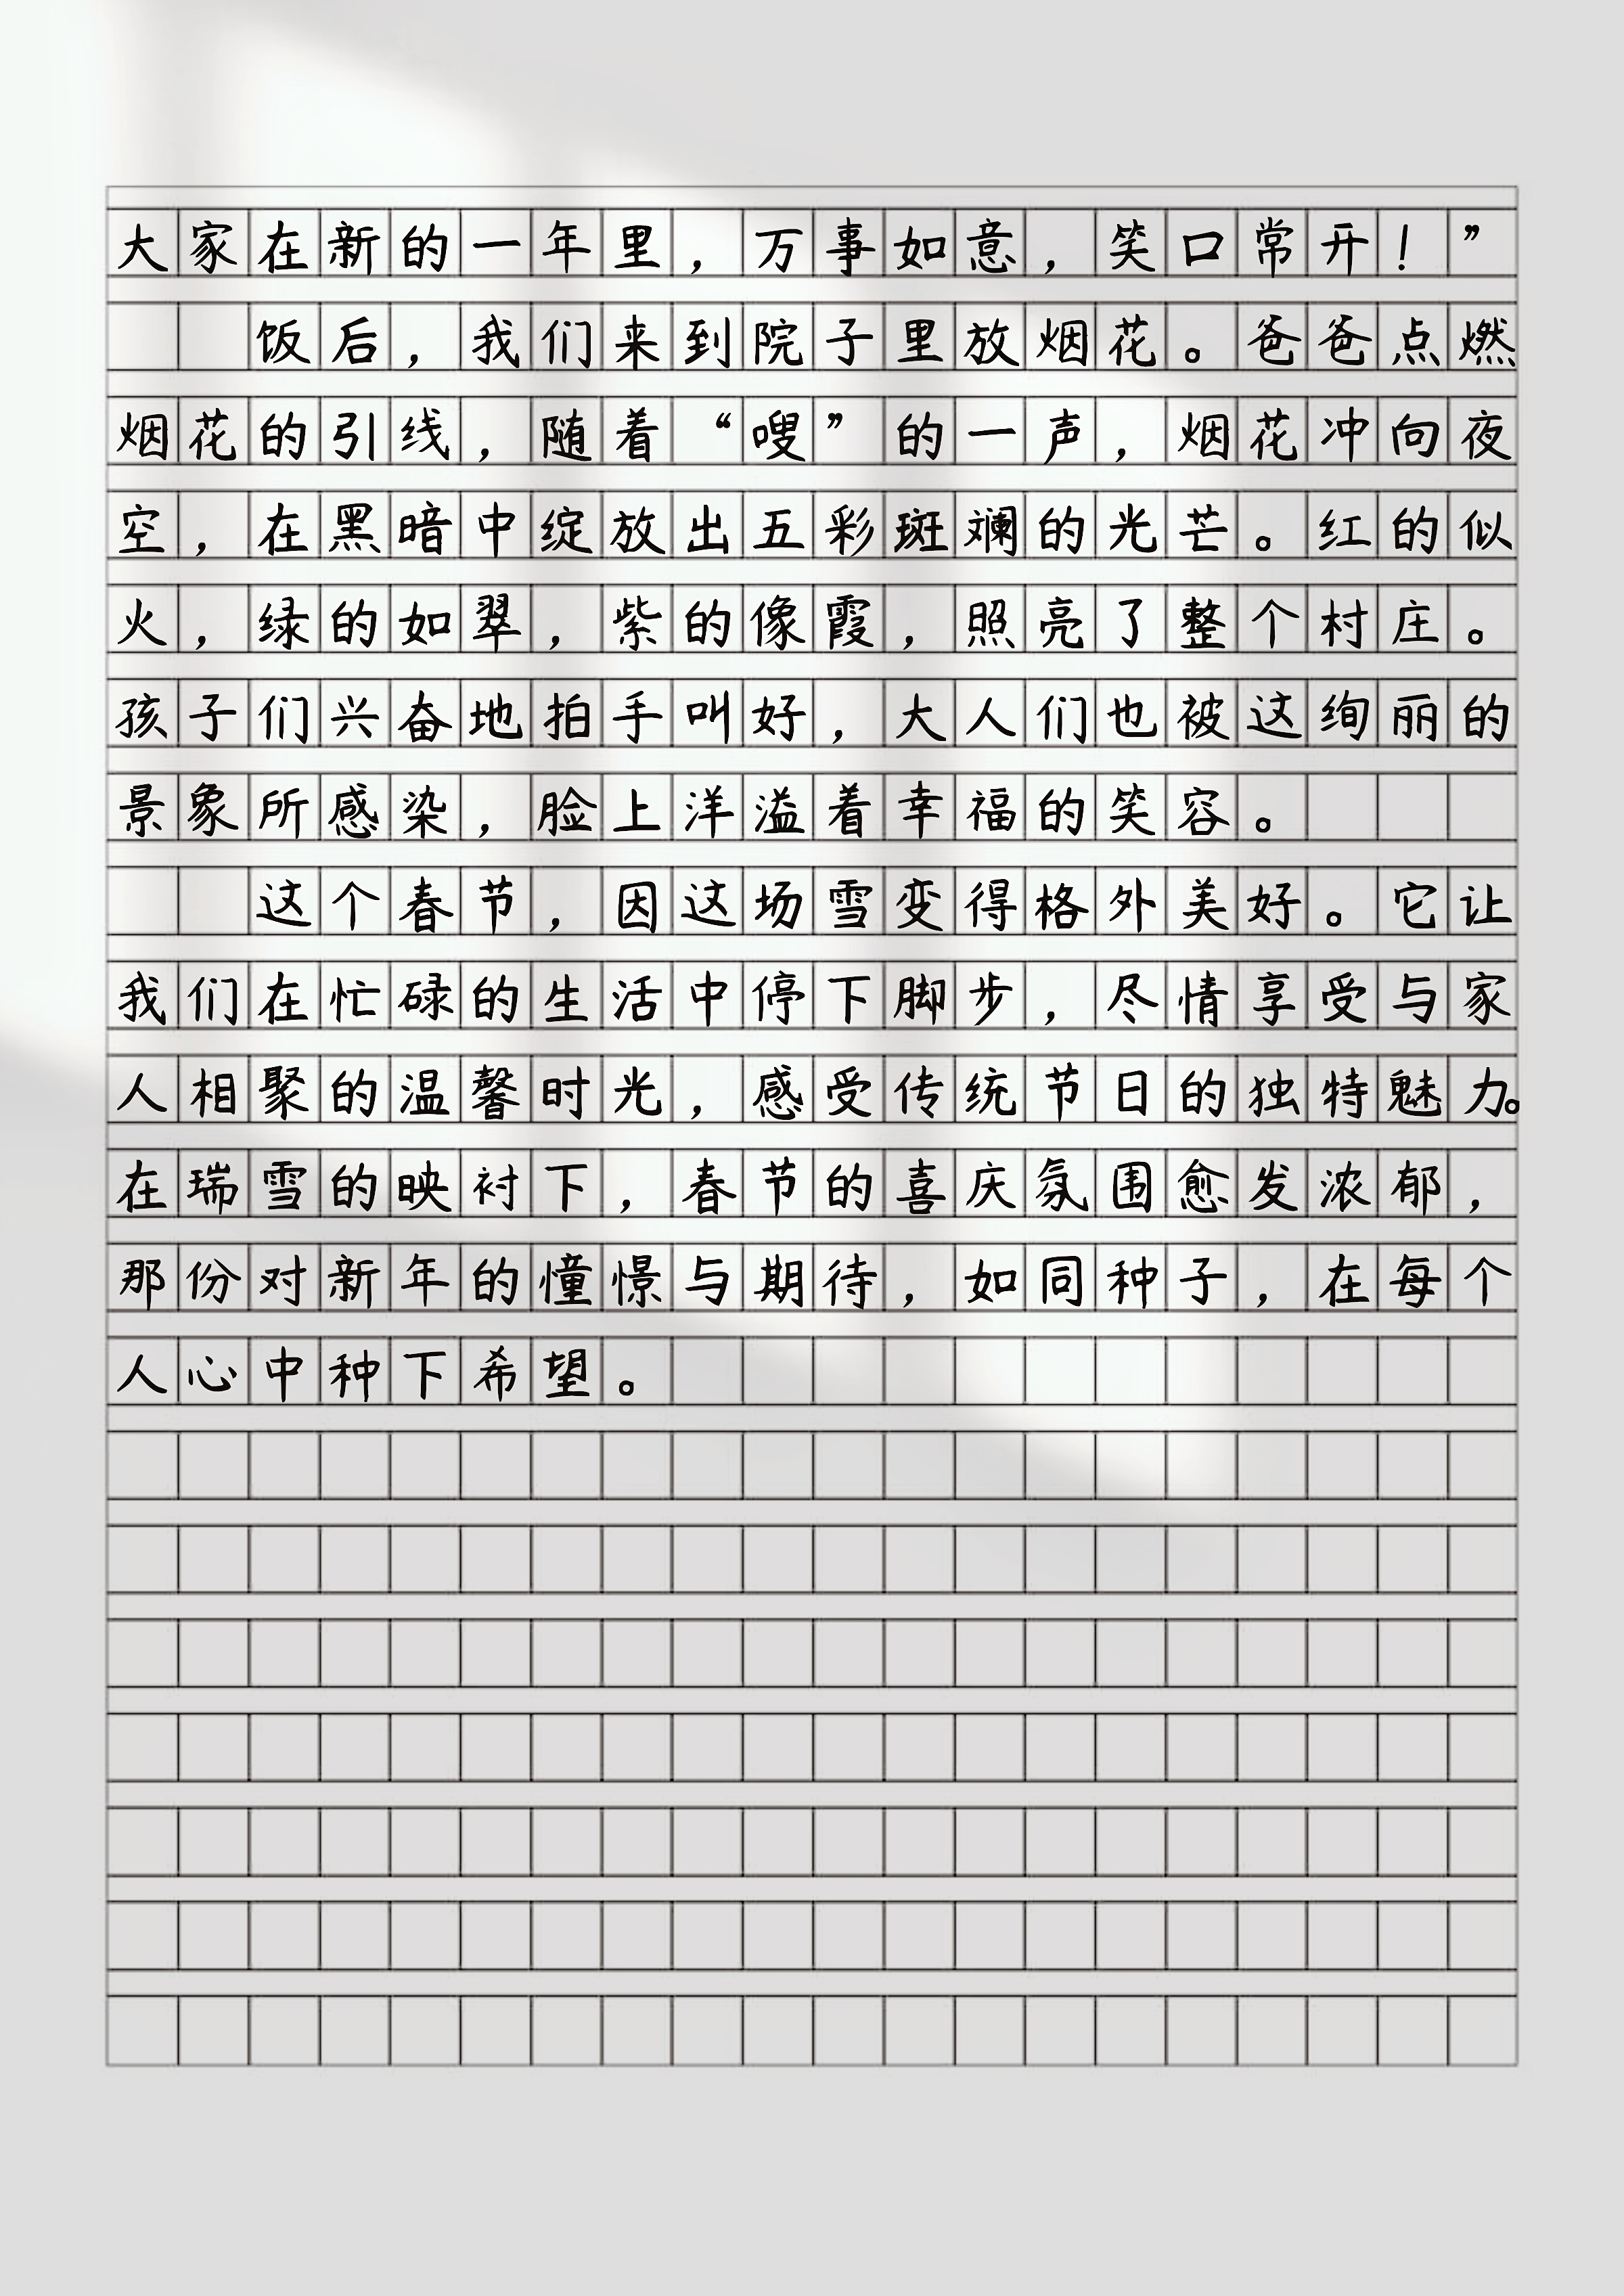 大家在新的一年里，万事如意，笑口常开！”
饭后，我们来到院子里放烟花。爸爸点燃
烟花的引线，随着“嗖”的一声，烟花冲向夜
空，在黑暗中绽放出五彩斑斓的光芒。红的似
火，绿的如翠，紫的像霞，照亮了整个村庄。
孩子们兴奋地拍手叫好，大人们也被这绚丽的
景象所感染，脸上洋溢着幸福的笑容。
这个春节，因这场雪变得格外美好。它让
我们在忙碌的生活中停下脚步，尽情享受与家
人相聚的温馨时光，感受传统节日的独特魅力。
在瑞雪的映衬下，春节的喜庆氛围愈发浓郁，
那份对新年的憧憬与期待，如同种子，在每个
人心中种下希望。